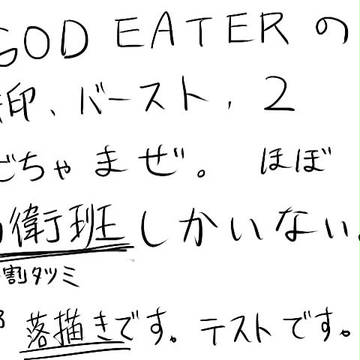 GOD EATERの
印、バースト、2
ごちゃまぜ。ほぼ
衛班しかいない。
割タツミ
落描きです。テストです。